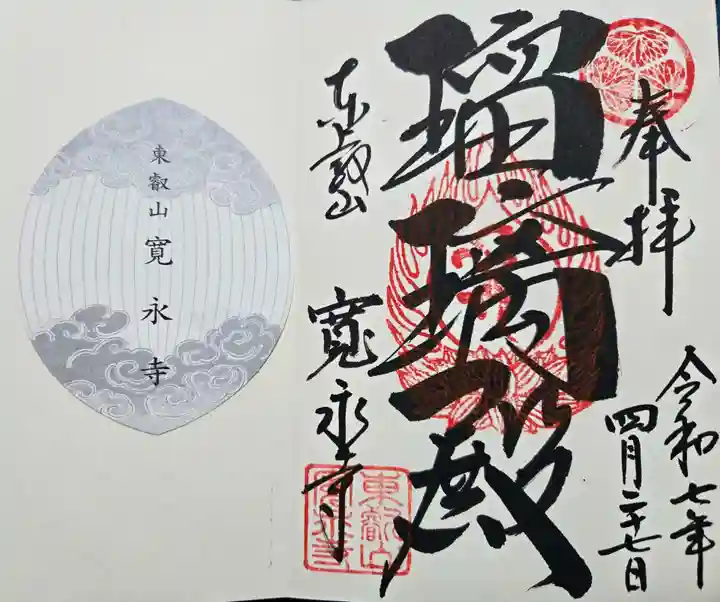 奉拝
令和七年
四月二十七日
瑠璃殿
東叡山
寛永寺
東叡山
寛永寺
東叡山寛永寺